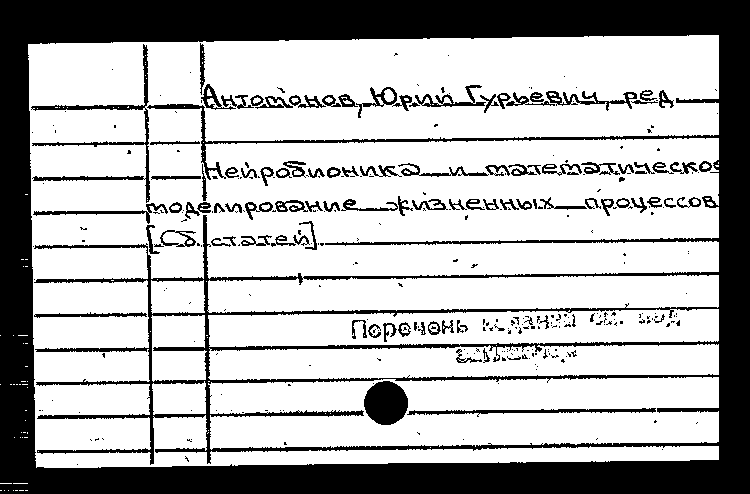 Антомонов, Юрий Гурьевич, ред.
Нейробионика и математическое
моделирование жизненных процессов
[Сб. статей]
Перечень изданий см. под
заглавием